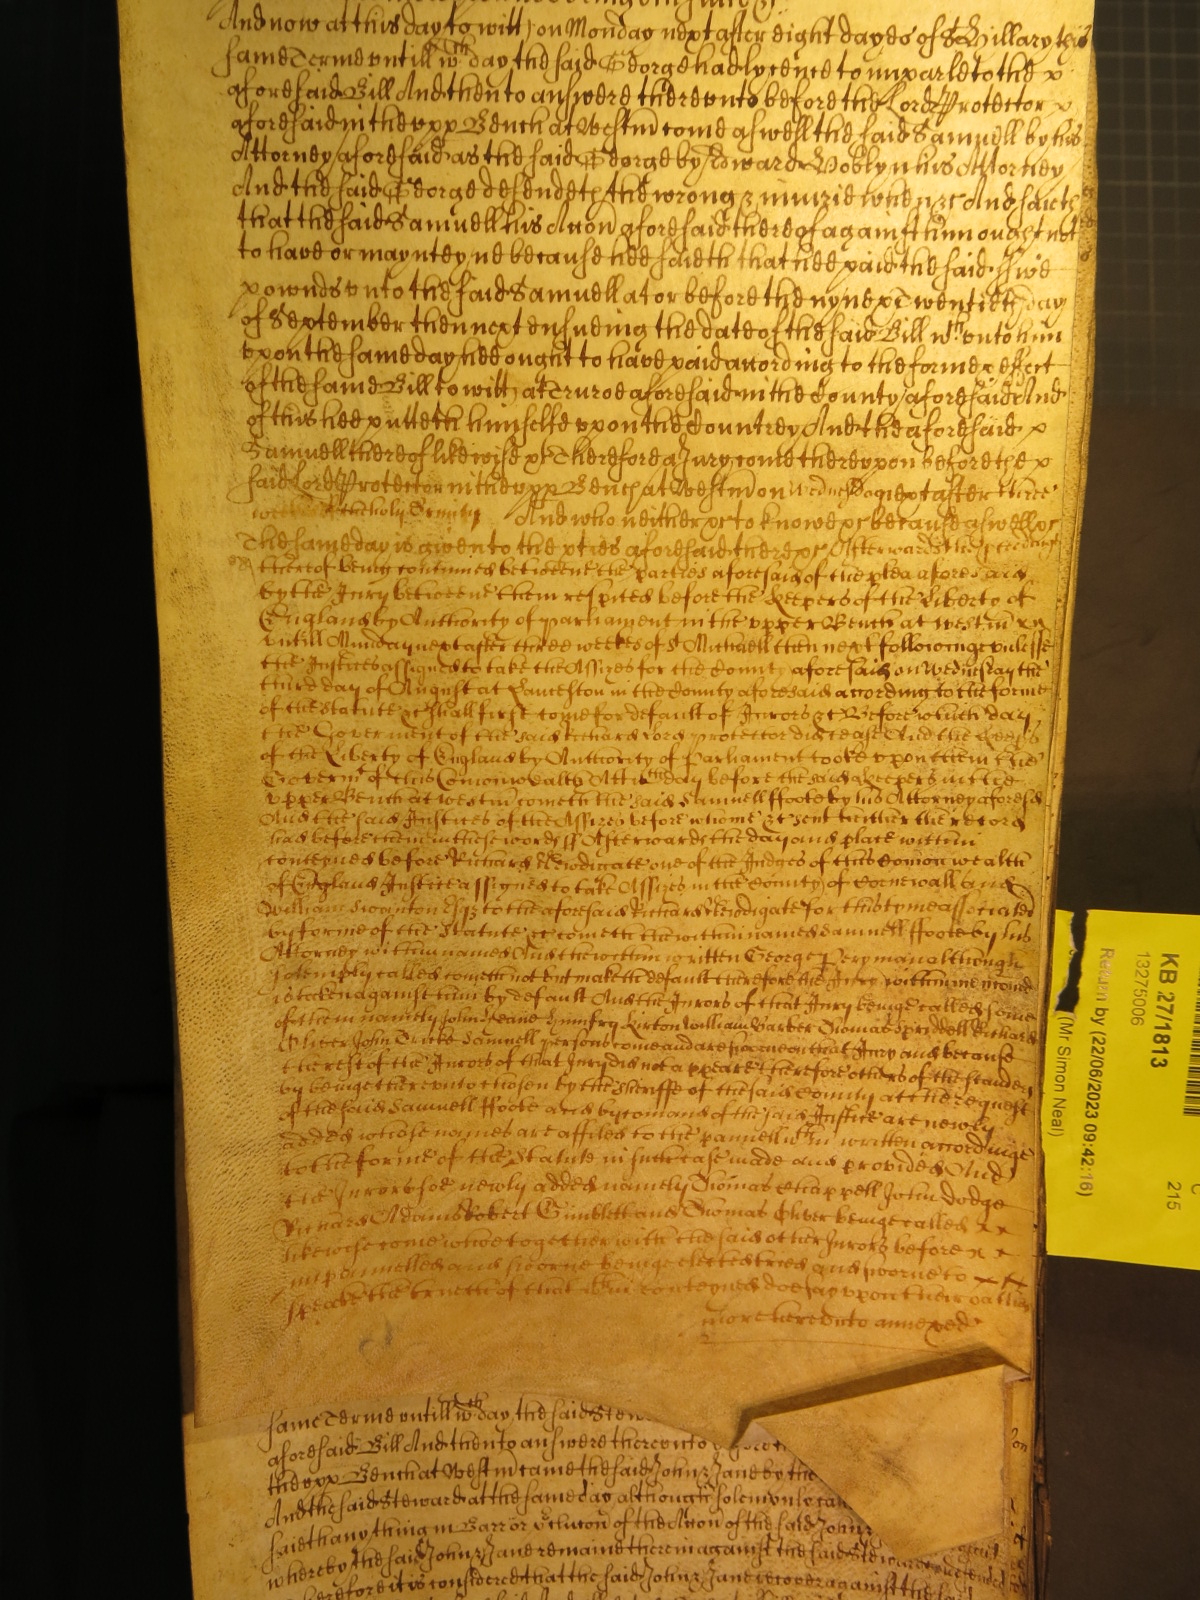 And now at this day to witt, on Monday next after eight dayes of St Hillary this
same Terme untill wch day the said George had lycence to imparle to the x
aforesaid Bill And then to answere thereunto before the Lord Protector x
aforesaid in the upp Bench at Westm come aswell the said Samuell by his
Attorney aforesaid as the said George by Edward his Attorney
And the said George defendeth the wrong & iniurie when &c And saith
that the said Samuell his Accon aforesaid thereof against him ought not
to have or maynteyne because hee saith that hee paid the said five
pownds unto the said Samuell at or before the nyne & Twentieth day
of September then next ensueing the date of the said Bill wch unto him
upon the same day hee ought to have paid according to the forme & effect
of the same Bill to witt, at Truroe aforesaid in the County aforesaid And
of this hee putteth himselfe upon the Countrey And the aforesaid x
Samuell thereof likewise &c Therefore a Jury come thereupon before the x
said Lord Protector in the upp Bench at Westm on Wednesday next after three
weekes of the holy Trinity And who neither &c to knowe &c because aswell &c
The same day is given to the pties aforesaid there &c Afterwards the
thereof being continued betweene the parties aforesaid of the plea aforesaid
by the Jury betweene them respited before the Keepers of the Liberto of
England by Authority of Parliament in the upper Bench at Westm
untill Munday next after three weekes of St Michaell then next followinge unlesse
the Justices assigned to take the Assizes for the County aforesaid on Wednesday the
third day of August at Lanceston in the County aforesaid according to the forme
of the Statute &c shall first come for default of Jurors &c Before which day
the Goverment of the said Richard Lord protector did cease And the Keeps
of the Liberty of England by Authority of Parliament tooke upon them the
Govermt of this Comonwealth Att wch day before the said keepers in the
upper Bench at westm cometh the said Samuell ffoote by his Attorney aforesd
And the said Justices of the Assizes before whome &c sent hither there record
had before them in these words ss Afterwards the day and place within
conteyned before Richard Newdigate one of the Judges of this Comon wealth
of England Justice assigned to take Assizes in the County of Cornewall and
William Swanton Esqr to the aforesaid Richard Newdigate for this tyme associated
by forme of the Statute &c cometh the within named Samuell ffoote by his
Attorney within named And the within written George Peryman although
solemply called cometh not but maketh default therefore the Jury within menconed
is taken against him by default And the Jurors of that Jury beinge called some
of them namely John Humfry William Barker Thomas Richard
Oliver John Samuell persons come and are sworne on that Jury and because
the rest of the Jurors of that Jury did not appeare therefore others of the standers
by beinge thereunto chosen by the Sheriffe of the said County att the request
of the said Samuell ffoote and by comand of the said Justice are newly
added whose names are affiled to the pannell wthin written accordinge
to the forme of the Statute in such case made and provided And
the Jurors soe newly added namely Thomas Chappell John Dodge
Richard Adams Robert Gimblett and Thomas Oliver beinge called x x
likewise come whoe together with the said other Jurors before x x
impannelled and sworne beinge elected tried and sworne to x x
speake the trueth of that wthin conteyned doe say upon their oathes
more hereunto annexed
same Terme untill wch day the said
aforesaid Bill And then to answere thereunto before
the upp Bench at Westm came the said John & Jane by the
And the said Steward at the same day although solemnly
saith anything in Barr or of the Accon of the said John &
whereby the said John & Jane remaine therein against the said Steward
Therefore it is considered that the said John & Jane recover against the said
KB 27/1813
13275006
Return by (22/06/2023 09:42:16)
(Mr Simon Neal)
215